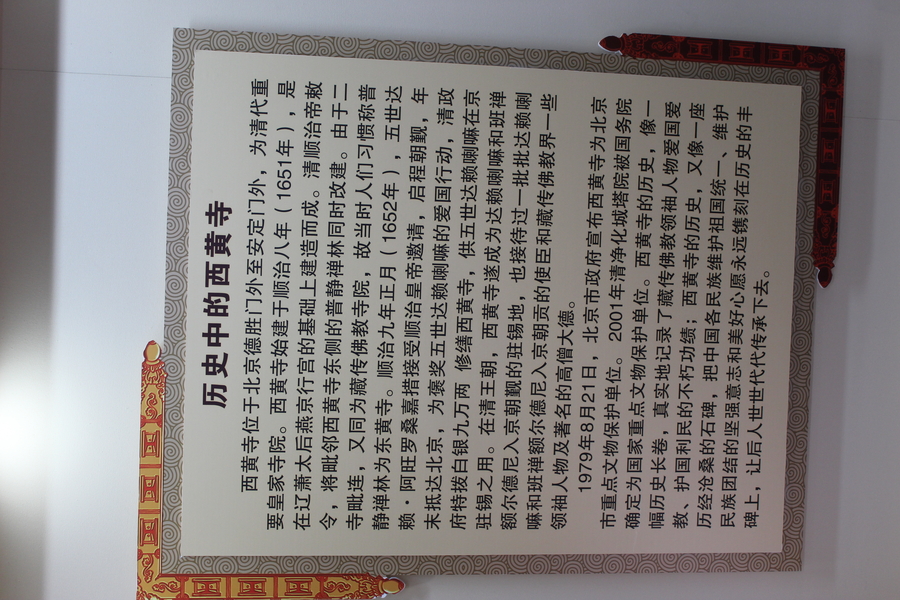 历史中的西黄寺
西黄寺位于北京德胜门外至安定门外，为清代重
要皇家寺院。西黄寺始建于顺治八年（1651年），是
在辽萧太后燕京行宫的基础上建造而成。清顺治帝敕
令，将毗邻西黄寺东侧的普静禅林同时改建。由于二
寺毗连，又同为藏传佛教寺院，故当时人们习惯称普
静禅林为东黄寺。顺治九年正月（1652年），五世达
赖·阿旺罗桑嘉措接受顺治皇帝邀请，启程朝觐，年
末抵达北京，为褒奖五世达赖喇嘛的爱国行动，清政
府特拨白银九万两 修缮西黄寺，供五世达赖喇嘛在京
驻锡之用。在清王朝，西黄寺遂成为达赖喇嘛和班禅
额尔德尼入京朝觐的驻锡地，也接待过一批批达赖喇
嘛和班禅额尔德尼入京朝贡的使臣和藏传佛教界一些
领袖人物及著名的高僧大德。
1979年8月21日，北京市政府宣布西黄寺为北京
市重点文物保护单位。2001年清净化城塔院被国务院
确定为国家重点文物保护单位。西黄寺的历史，像一
幅历史长卷，真实地记录了藏传佛教领袖人物爱国爱
教、护国利民的不朽功绩；西黄寺的历史，又像一座
历经沧桑的石碑，把中国各民族维护祖国统一、维护
民族团结的坚强意志和美好心愿永远镌刻在历史的丰
碑上，让后人世世代代传承下去。